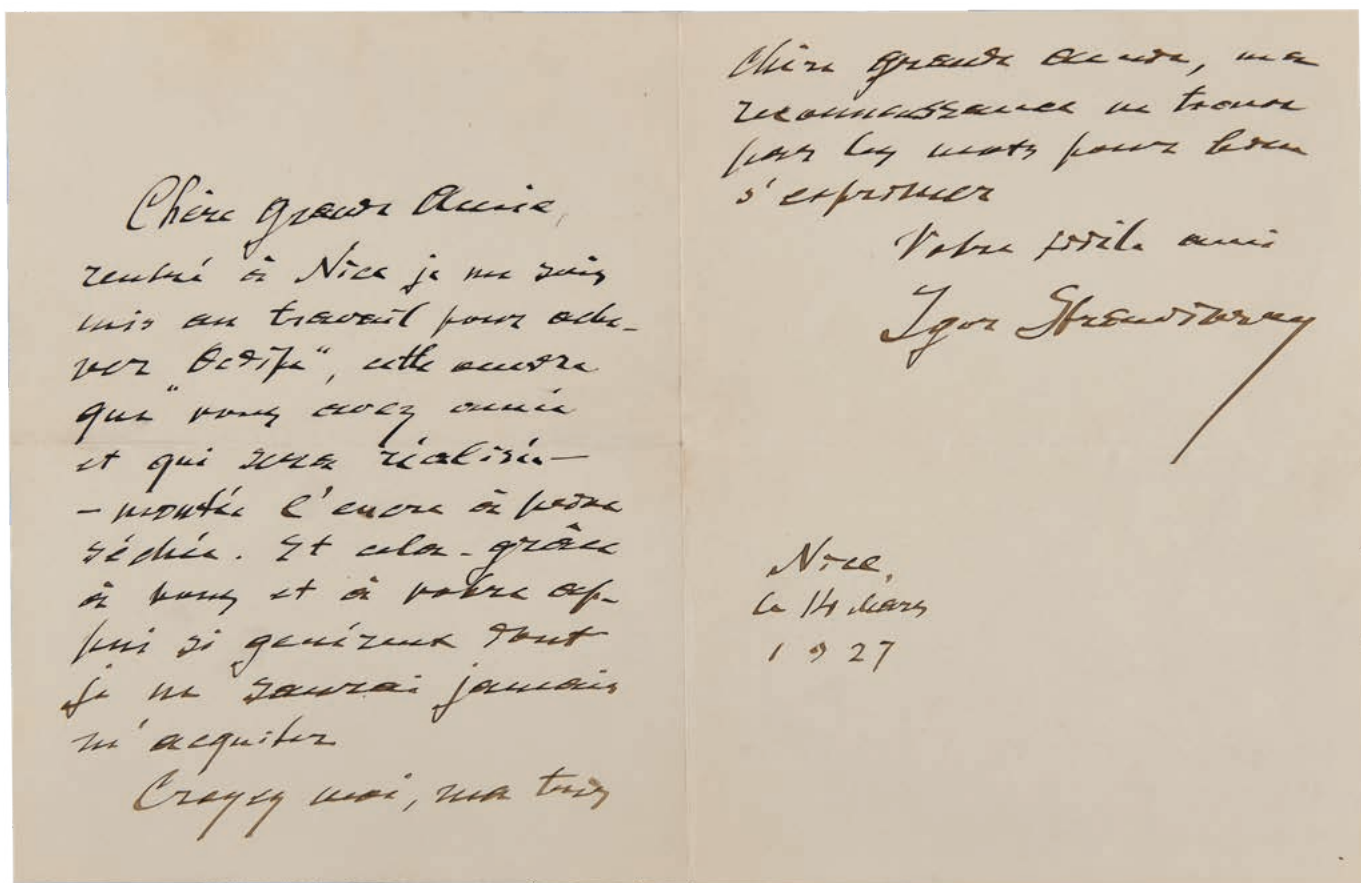 Chère grande Amie,
rentré à Nice je me suis
mis au travail pour ache-
ver „Oedipe“, cette oeuvre
que vous avez aimée
et qui sera réalisée—
— montée l'encre à peine
séchée. Et cela – grâce
à vous et à votre ap-
pui si genéreux dont
je ne saurai jamais
m'acquiter
Croyez moi, ma très
chère grande amie, ma
reconnaissance ne trouve
pas les mots pour bien
s'exprimer
Votre fidèle ami
Igor Strawinsky
Nice,
le 14 Mars
1927